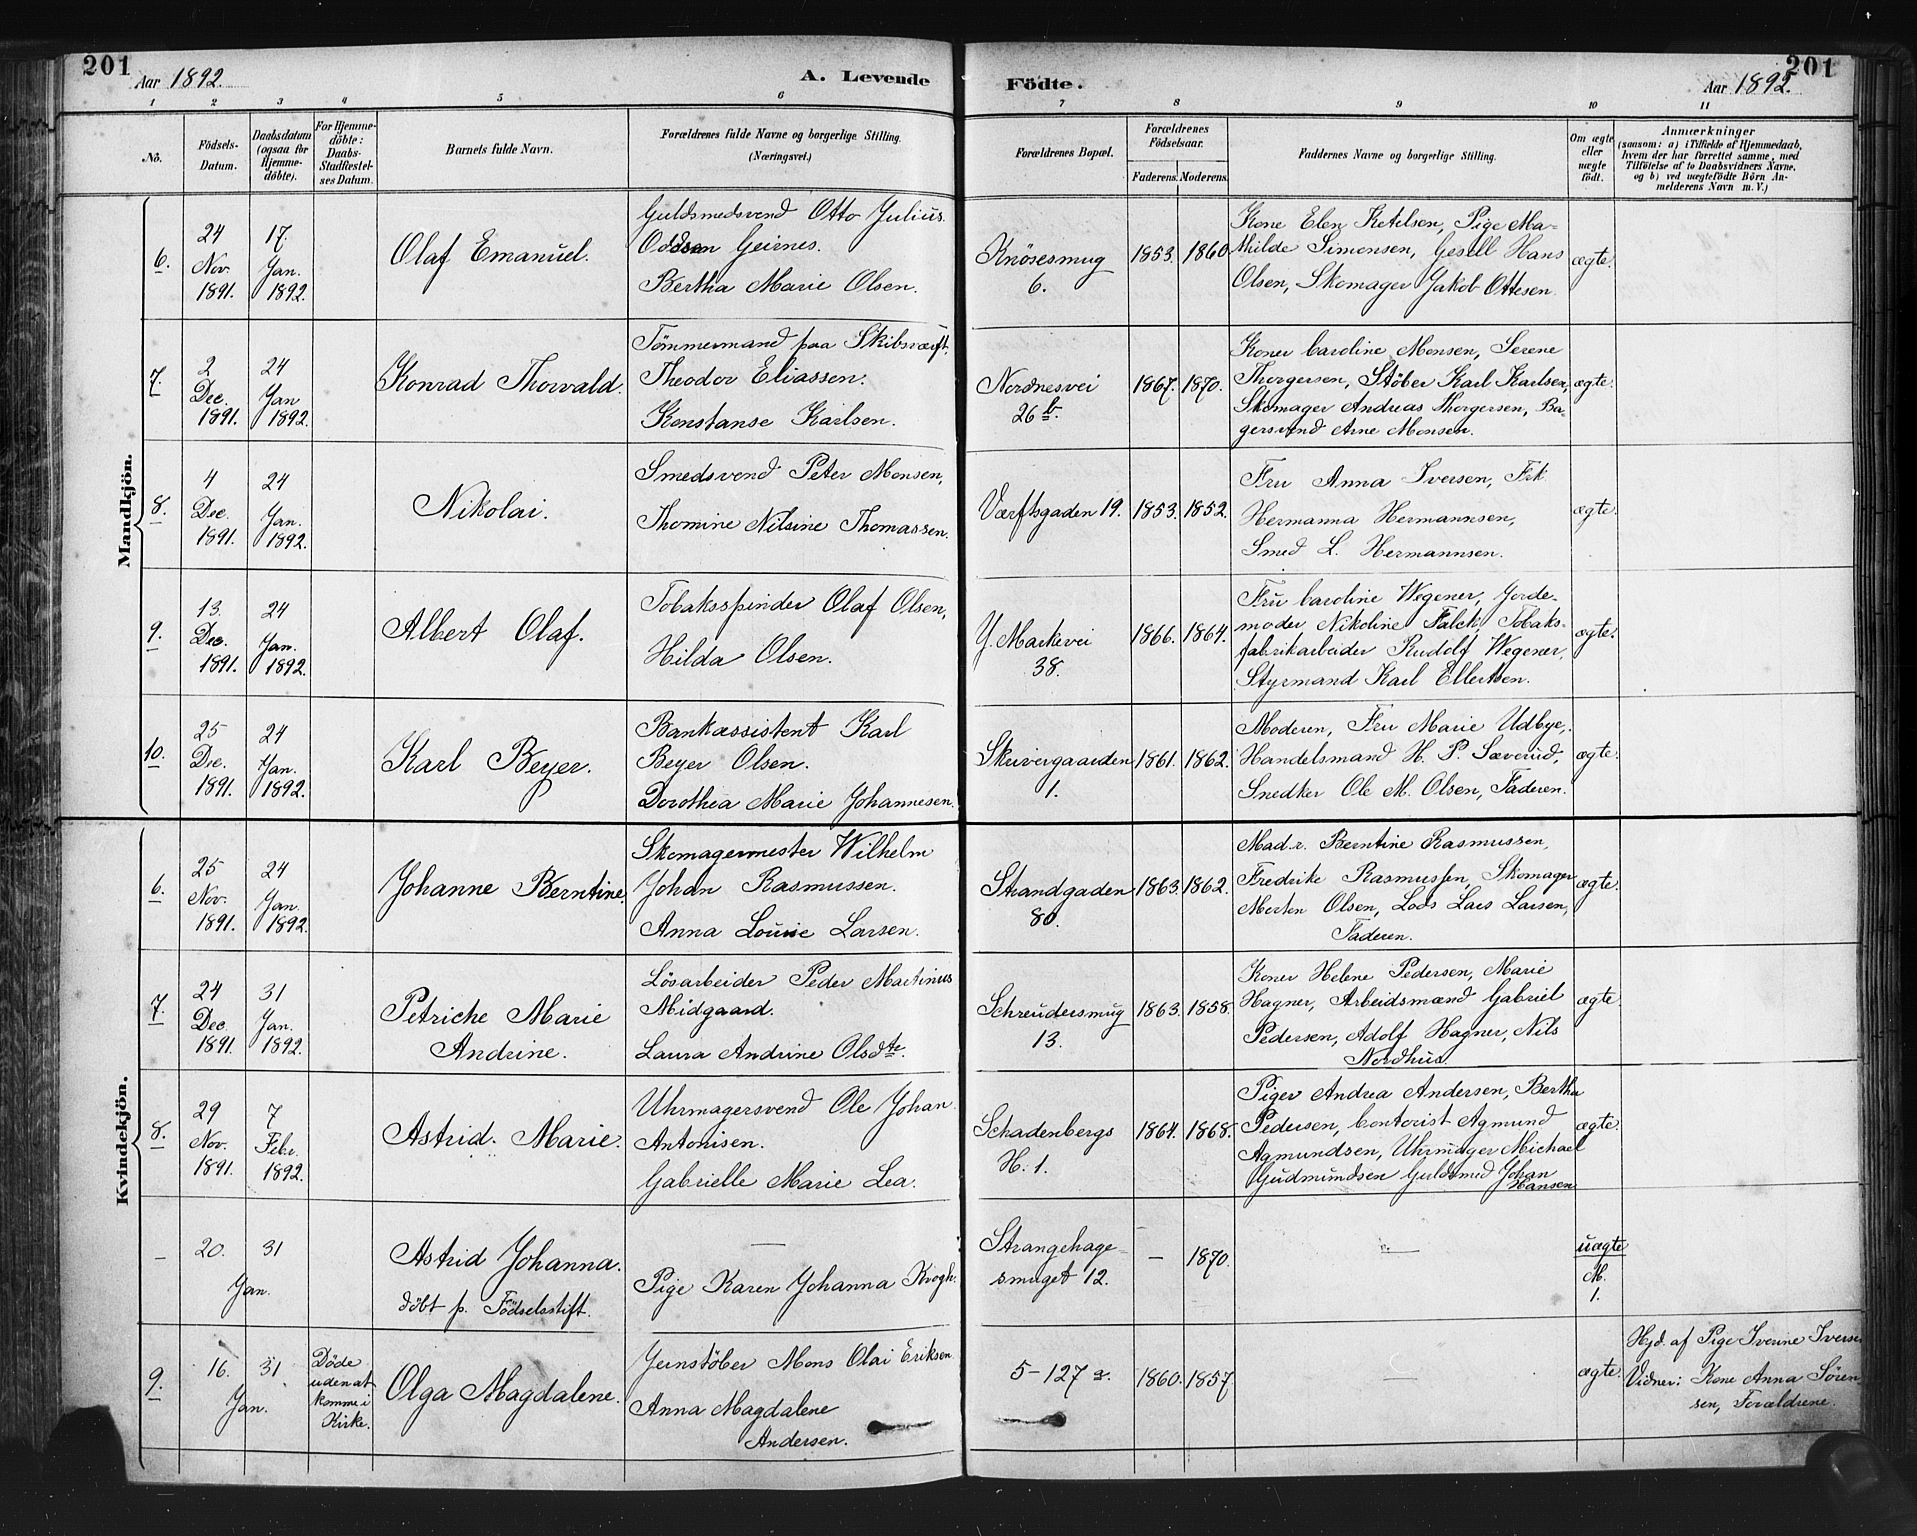 201
Aar 1892.
A. Levende
Födte.
Aar 1892.
201
1 2 3 4 5 6 7 8 9 10 11
No.
Födsels-
Datum.
Daabsdatum
(ogsaa for
Hjemme-
döbte).
For Hjemme-
döbte:
Daabs-
Stadfæstel-
ses Datum.
Barnets fulde Navn.
Forældrenes fulde Navne og borgerlige Stilling.
(Næringsvei.)
Forældrenes Bopæl.
Forældrenes
Födselsaar.
Faderens. Moderens.
Faddernes Navne og borgerlige Stilling.
Om ægte
eller
uægte
födt.
Anmærkninger
(saasom: a) i Tilfælde af Hjemmedaab,
hvem der har forrettet samme, med
Tilföielse af to Daabsvidners Navne,
og b) ved uægtefödte Börn An-
melderens Navn m. V.)
Mandkjön.
6.
24
Nov.
1891.
17.
Jan.
1892.
Olaf Emanuel.
Guldsmedsvend Otto Julius
Oddsen Geirnes.
Bertha Marie Olsen.
Knösesmug
6.
1853. 1860
Kone Elen Ketilsen, Pige Ma-
thilde Simonsen, Gesell Hans
Olsen, Skomager Jakob Ottesen
ægte.
7.
2
Dec.
1891.
24
Jan
1892.
Konrad Thorvald.
Tömmermand paa Skibsværft,
Theodor Eliassen.
Konstanse Karlsen.
Nordnesvei
26 b.
1867. 1870.
Koner Caroline Monsen, Serene
Thorgersen, Støber Karl Karlsen,
Skomager Andreas Thorgersen, Ba-
gersvend Arne Monsen.
ægte.
8.
4
Dec.
1891.
24
Jan.
1892.
Nikolai.
Smedsvend Peter Monsen,
Thomine Nilsine Thomassen.
Værftsgaden 19.
1853. 1852.
Fru Anna Iversen, Frk
Hermanna Hermannsen,
Smed L. Hermannsen.
ægte.
9.
13.
Dec.
1891.
24
Jan.
1892.
Albert Olaf.
Tobaksspinder Olaf Olsen,
Hilda Olsen.
Y. Markevei
38.
1866. 1864.
Fru Caroline Wegener, Jorde-
moder Nikoline Falck, Tobaks-
fabrikarbeider Rudolf Wegener,
Styrmand Karl Ellertsen.
ægte.
10.
25
Dec.
1891.
24
Jan.
1892.
Karl Beyer.
Bankassistent Karl
Beyer Olsen.
Dorothea Marie Johannesen.
Skrivergaarden
1.
1861. 1862.
Moderen, Fru Marie Udbye,
Handelsmand H. P. Sæverud,
Snedker Ole M. Olsen, Faderen.
ægte.
Kvindekjön.
6.
25
Nov.
1891.
24
Jan.
1892.
Johanne Berntine.
Skomagermester Wilhelm
Johan Rasmussen.
Anna Louise Larsen.
Strandgaden
80.
1863. 1862.
Mad.r. Berntine Rasmussen,
Fredrike Rasmussen, Skomager
Morten Olsen, Lods Lars Larsen,
Faderen.
ægte.
7.
24
Dec.
1891.
31
Jan.
1892.
Petriche Marie
Andrine.
Lösarbeider Peder Martinus
Midgaard.
Laura Andrine Olsdte.
Schreudersmug
13.
1863. 1858.
Koner Helene Pedersen, Marie
Hagner, Arbeidsmænd Gabriel
Pedersen, Adolf Hagner, Nils
Nordhus.
ægte
8.
29
Nov.
1891.
7
Febr.
1892.
Astrid. Marie.
Uhrmagersvend Ole Johan
Antonisen.
Gabrielle Marie Lea.
Schadenbergs
H. 1.
1864. 1868.
Piger Andrea Andersen, Bertha
Pedersen, Contorist Agmund
Agmundsen, Uhrmager Michael
Gudmundsen Guldsmed Johan
Hansen
ægte.
–
20.
31
Jan.
Astrid Johanna.
döbt p. Födselsstift.
—
Pige Karen Johanna Krogh.
Strangehage-
smuget 12.
– 1870.
—
uægte
M.
1.
9.
16.
31
Jan.
Döde
uden at
komme i
Kirke.
Olga Magdalene.
Jernstöber Mons Olai Eriksen
Anna Magdalene
Andersen.
5-127 a.
1860. 1857
—
ægte.
Hjd. af Pige Iverine Iversen
Vidner: Kone Anna Sören
sen, Forældrene.